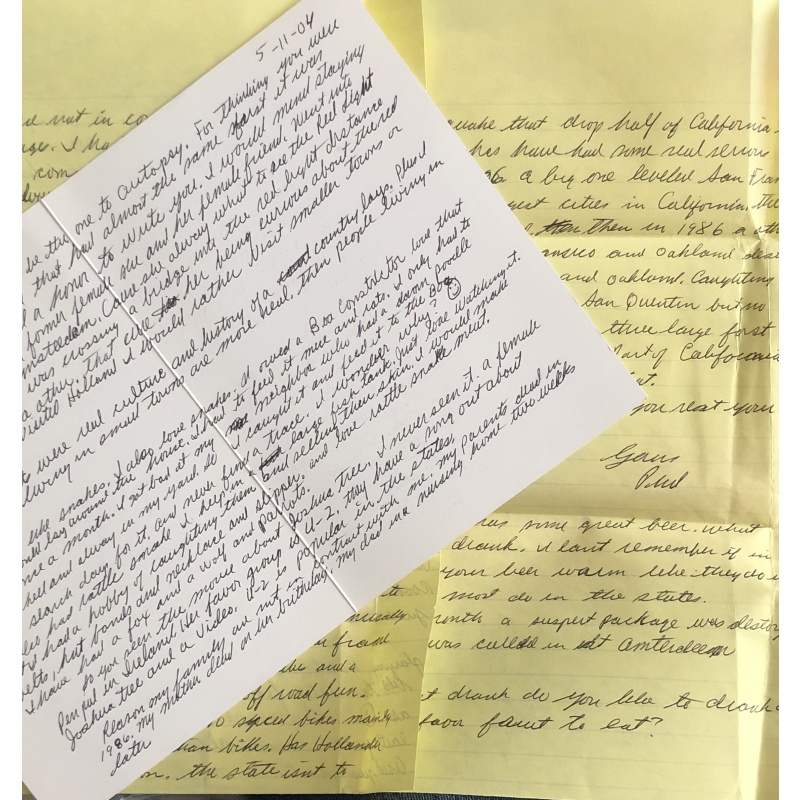 5-11-04
be the one to autopsy. For thinking you were
that had almost the same first it was
a honor to write you. I would mind staying
former female see and her female friend. Went into
Cause she always what to see the Red light
was crossing a bridge into the red light distance
a other. That cute her being curious about the red
visited Holland I would rather visit smaller towns or
country lays. Plus I
t were real culture and history of a
living in small towns are more real. then people living in
like snakes. I also love snakes. I owed a Boa Constrictor love that
ould lay around the house. what to feed it mice and rats. I only had to
me a month. I got bad at my neighbor who had a damn poodle
hell and alway in my yard. So I caught it and feed it to the Boa
search days for it. And never find a trace. I wonder why?
les has rattle snake I keep in large fish tank. Just love watching it.
I had a hobby of caughting them and selling their skin. I would make
elts, hat bands and necklace and slipper. and love rattle snake meat.
I have had a fox and a wolf and parrots.
So you seen the movie about Joshua tree. I never seen it. a female
Pen pal in Ireland. Her favor group is U-2. they have a song out about
Joshua tree and a video. U-2 is popular in the states.
Reason my family are not in contract with me. my parents dead in
1986. my mother died on her birthday. my dad in a nursing home two weeks
later
d not in co
ages. I ha
com
quake that drop half of California
hes have had some real serious
96 a big one leveled San Fran
gest cities in California. the
then then in 1986 a oth
ansico and Oakland dese
and Oakland. Caughting
San Quentin but no
three large first
Part of California
ut.
you rest your
Yours
has some great beer. what
drank. I cant remember if in
your beer warm like they do i
most do in the states.
with a suspect package was destoy
was called in at Amsterdeem
t drank do you like to drank
favor faut to eat?
to
nically
u frand
like and a
off road fun.
10 speed bikes mainly
than bikes. Has Hollands
on. the state isnt to